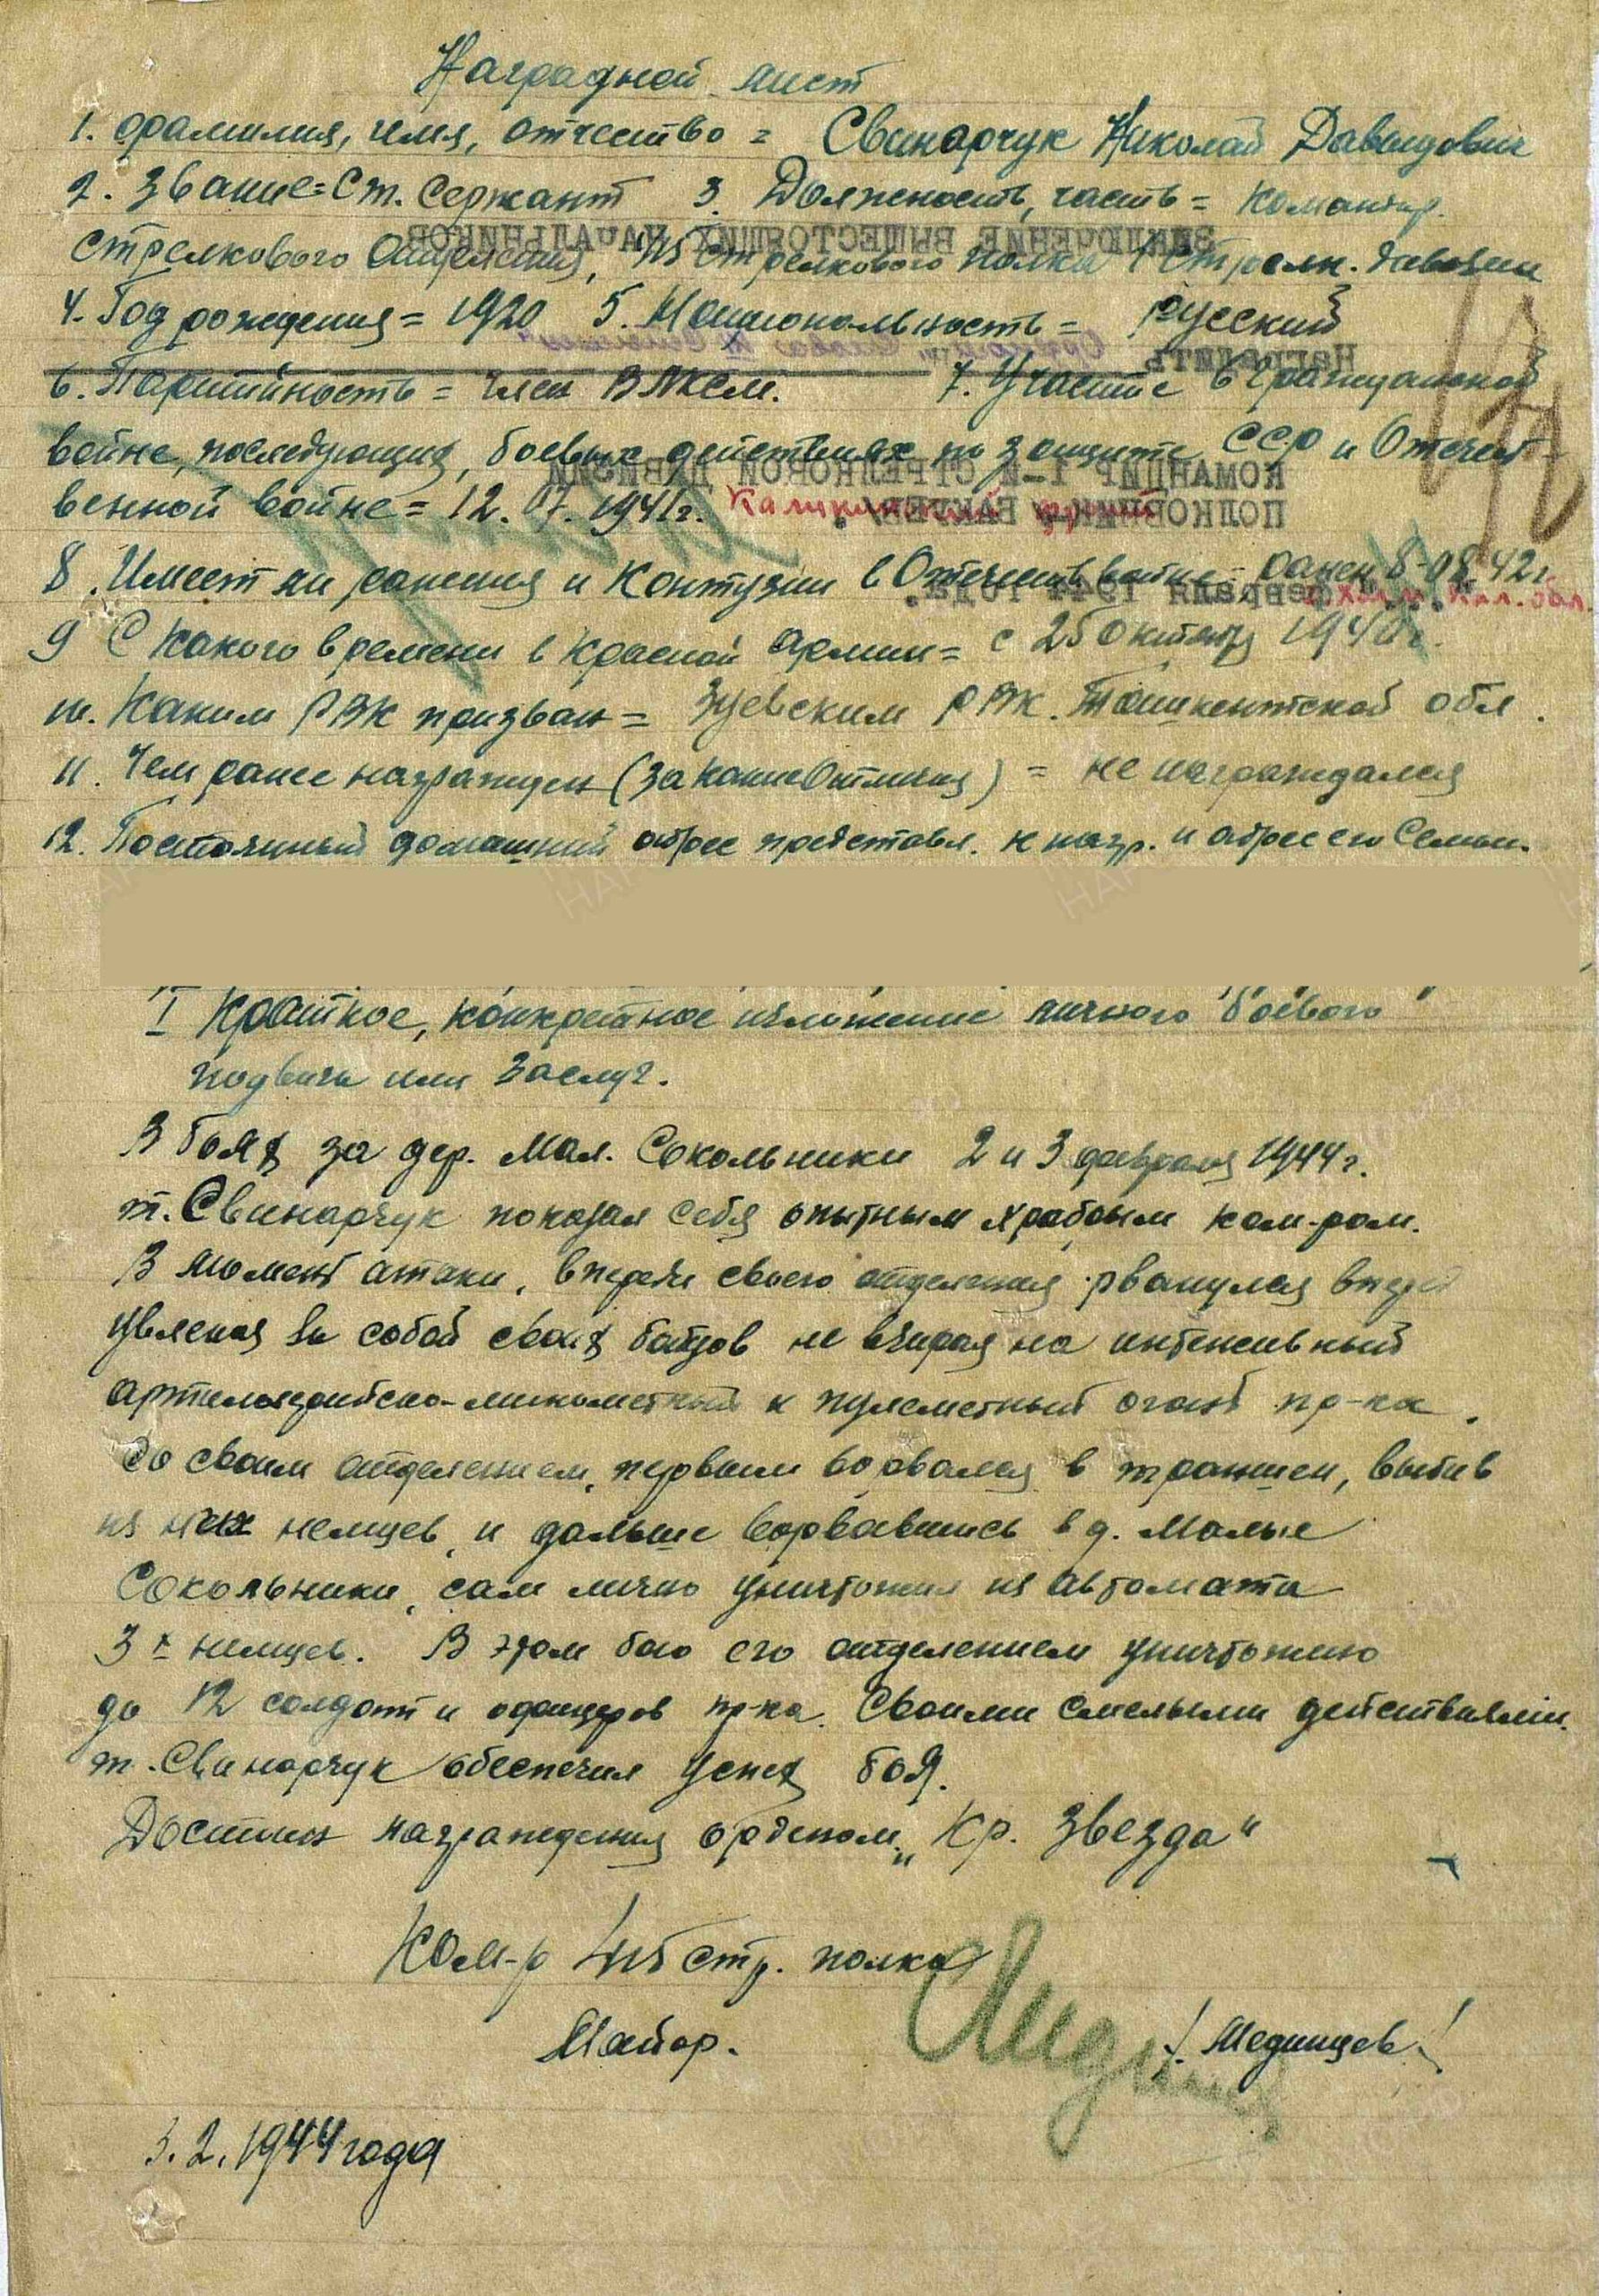 Наградной лист
1. Фамилия, имя, отчество = Свинарчук Николай Давыдович
2. Звание = Ст. Сержант 3. Должность, часть = Командир
стрелкового Отделения, 415 стрелкового полка 1 Стрелк. дивизии
4. Год рождения = 1920 5. Национальность = русский
6. Партийность = член ВЛКСМ. 7. Участие в гражданской
войне, последующих боевых действиях по защите СССР и Отечест-
венной войне = 12.07.1941г. Калининский фронт
8. Имеет ли ранения и контузии в Отечеств войне - ранен 8-08.42г
9 С какого времени в Красной Армии = с 25 Октября 1940г.
10. Каким РВК призван = РВК. Ташкентской обл.
11. Чем ранее награжден (за какие Отличия) = не награждался
12. Постоянный домашний адрес представл. к нагр. и адрес его Семьи.
I Краткое, конкретное изложение личного боевого
подвига или заслуг.
В боях за дер. Мал. Сокольники 2 и 3 февраля 1944г.
т. Свинарчук показал себя опытным храбрым ком-ром.
В момент атаки, впереди своего отделения рванулся вперед
увлекая за собой своих бойцов не взирая на интенсивный
артиллерийско-минометный и пулеметный огонь пр-ка.
Со своим отделением, первым ворвался в траншеи, выбив
из них немцев, и дальше ворвавшись в д. Малые
Сокольники, сам лично уничтожил из автомата
3х немцев. В этом бою его отделением уничтожено
до 12 солдат и офицеров пр-ка. Своими смелыми действиями
т. Свинарчук обеспечил успех боя.
Достоин награждения орденом „Кр. Звезда"
Ком-р 415 стр. полка
Майор. /Мединцев/
3.2.1944 года